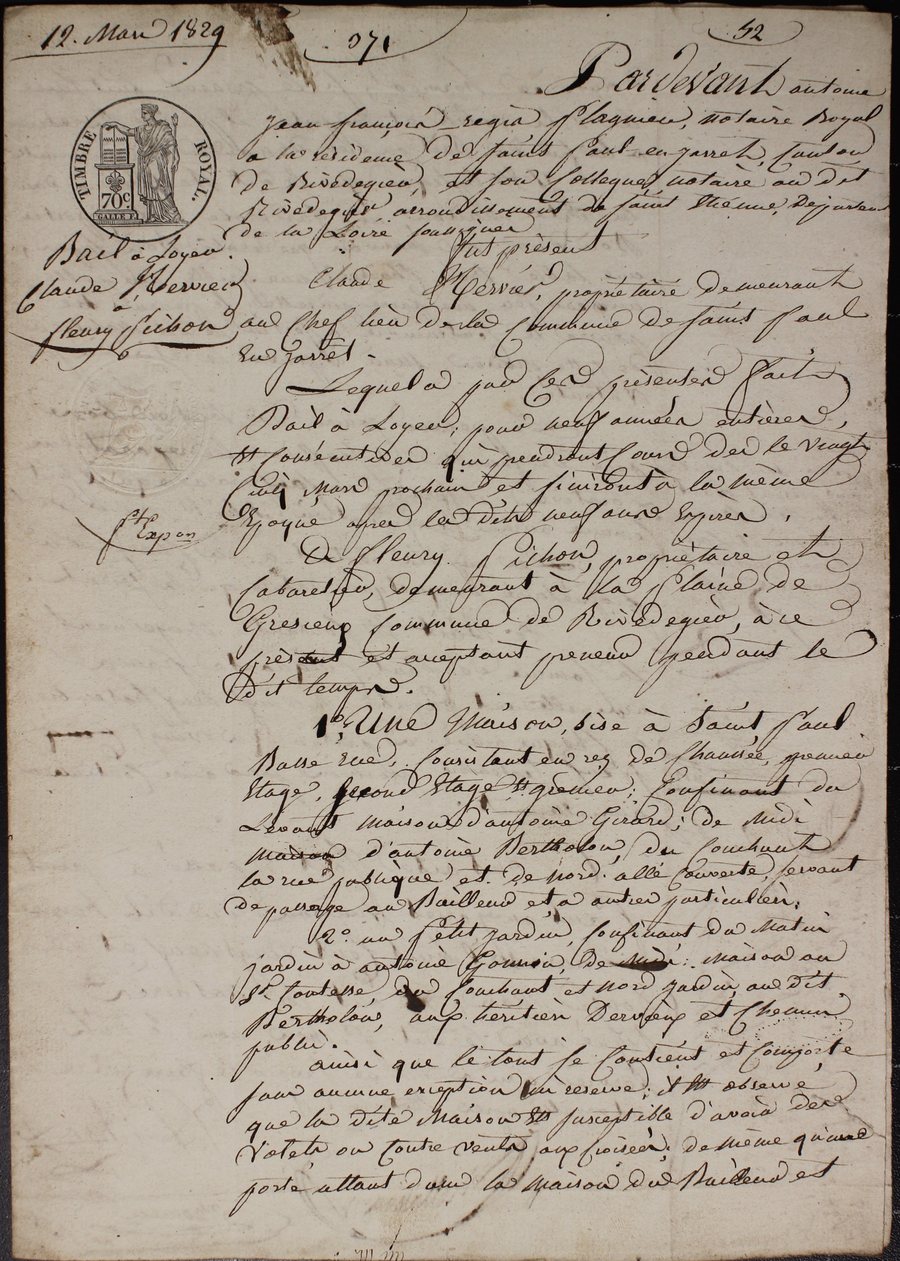 12. Mars 1829
371
52
TIMBRE ROYAL.
70c
Pardevant antoine
jean françois regis flagnieu, notaire Royal
a la résidence de saint paul en jarret, canton
de Rivedegier, et son Collegue, notaire au dit
Rivedegier arrondissement de saint Etienne, Departem
de la Loire soussignés
Bail à Loyer
Claude Hervier
à
fleury pichon
fut présent
Claude Hervier, propriétaire demeurant
au Chef lieu de la Commune de saint paul
En Jarret.
Lequel a par Ces présentes fait
Bail à Loyer, pour neuf années entières,
et Consécutives qui prendront Cours des le vingt
Cinq Mars prochain et finiront a la même
Epoque après les dits neuf ans Expirés.
st Exp on
De fleury Pichon, propriétaire et
Cabaretier, demeurant à la plaine de
Gresieux Commune de Rivedegier, à ce
présent et acceptant preneur pendant le
dit temps.
1° Une Maison, sise à Saint paul
Basse rue, Consistant en rez de Chaussée, premier
Etage, second Etage et grenier; Confinant du
Levant Maison d'antoine Girard; de Midi
maison d'antoine Bertholon, du Couchant
la rue publique et de nord allé Couverte, servant
de passage au Bailleur et a autres particuliers;
2° un petit jardin, Confinant du Matin
jardin à antoine de Midi: Maison au
Sr. Contesse du Couchant et nord jardin au dit
Bertholon, aux héritiers Dervieux et Chemin
public.
ainsi que le tout se Contient et Comporte
sans aucune exception ni reserve; il est observé
que la dite Maison est susceptible d'avoir des
Volets ou Contre vents aux Croisées, de même qu'une
porte allant dans la maison du Bailleur et